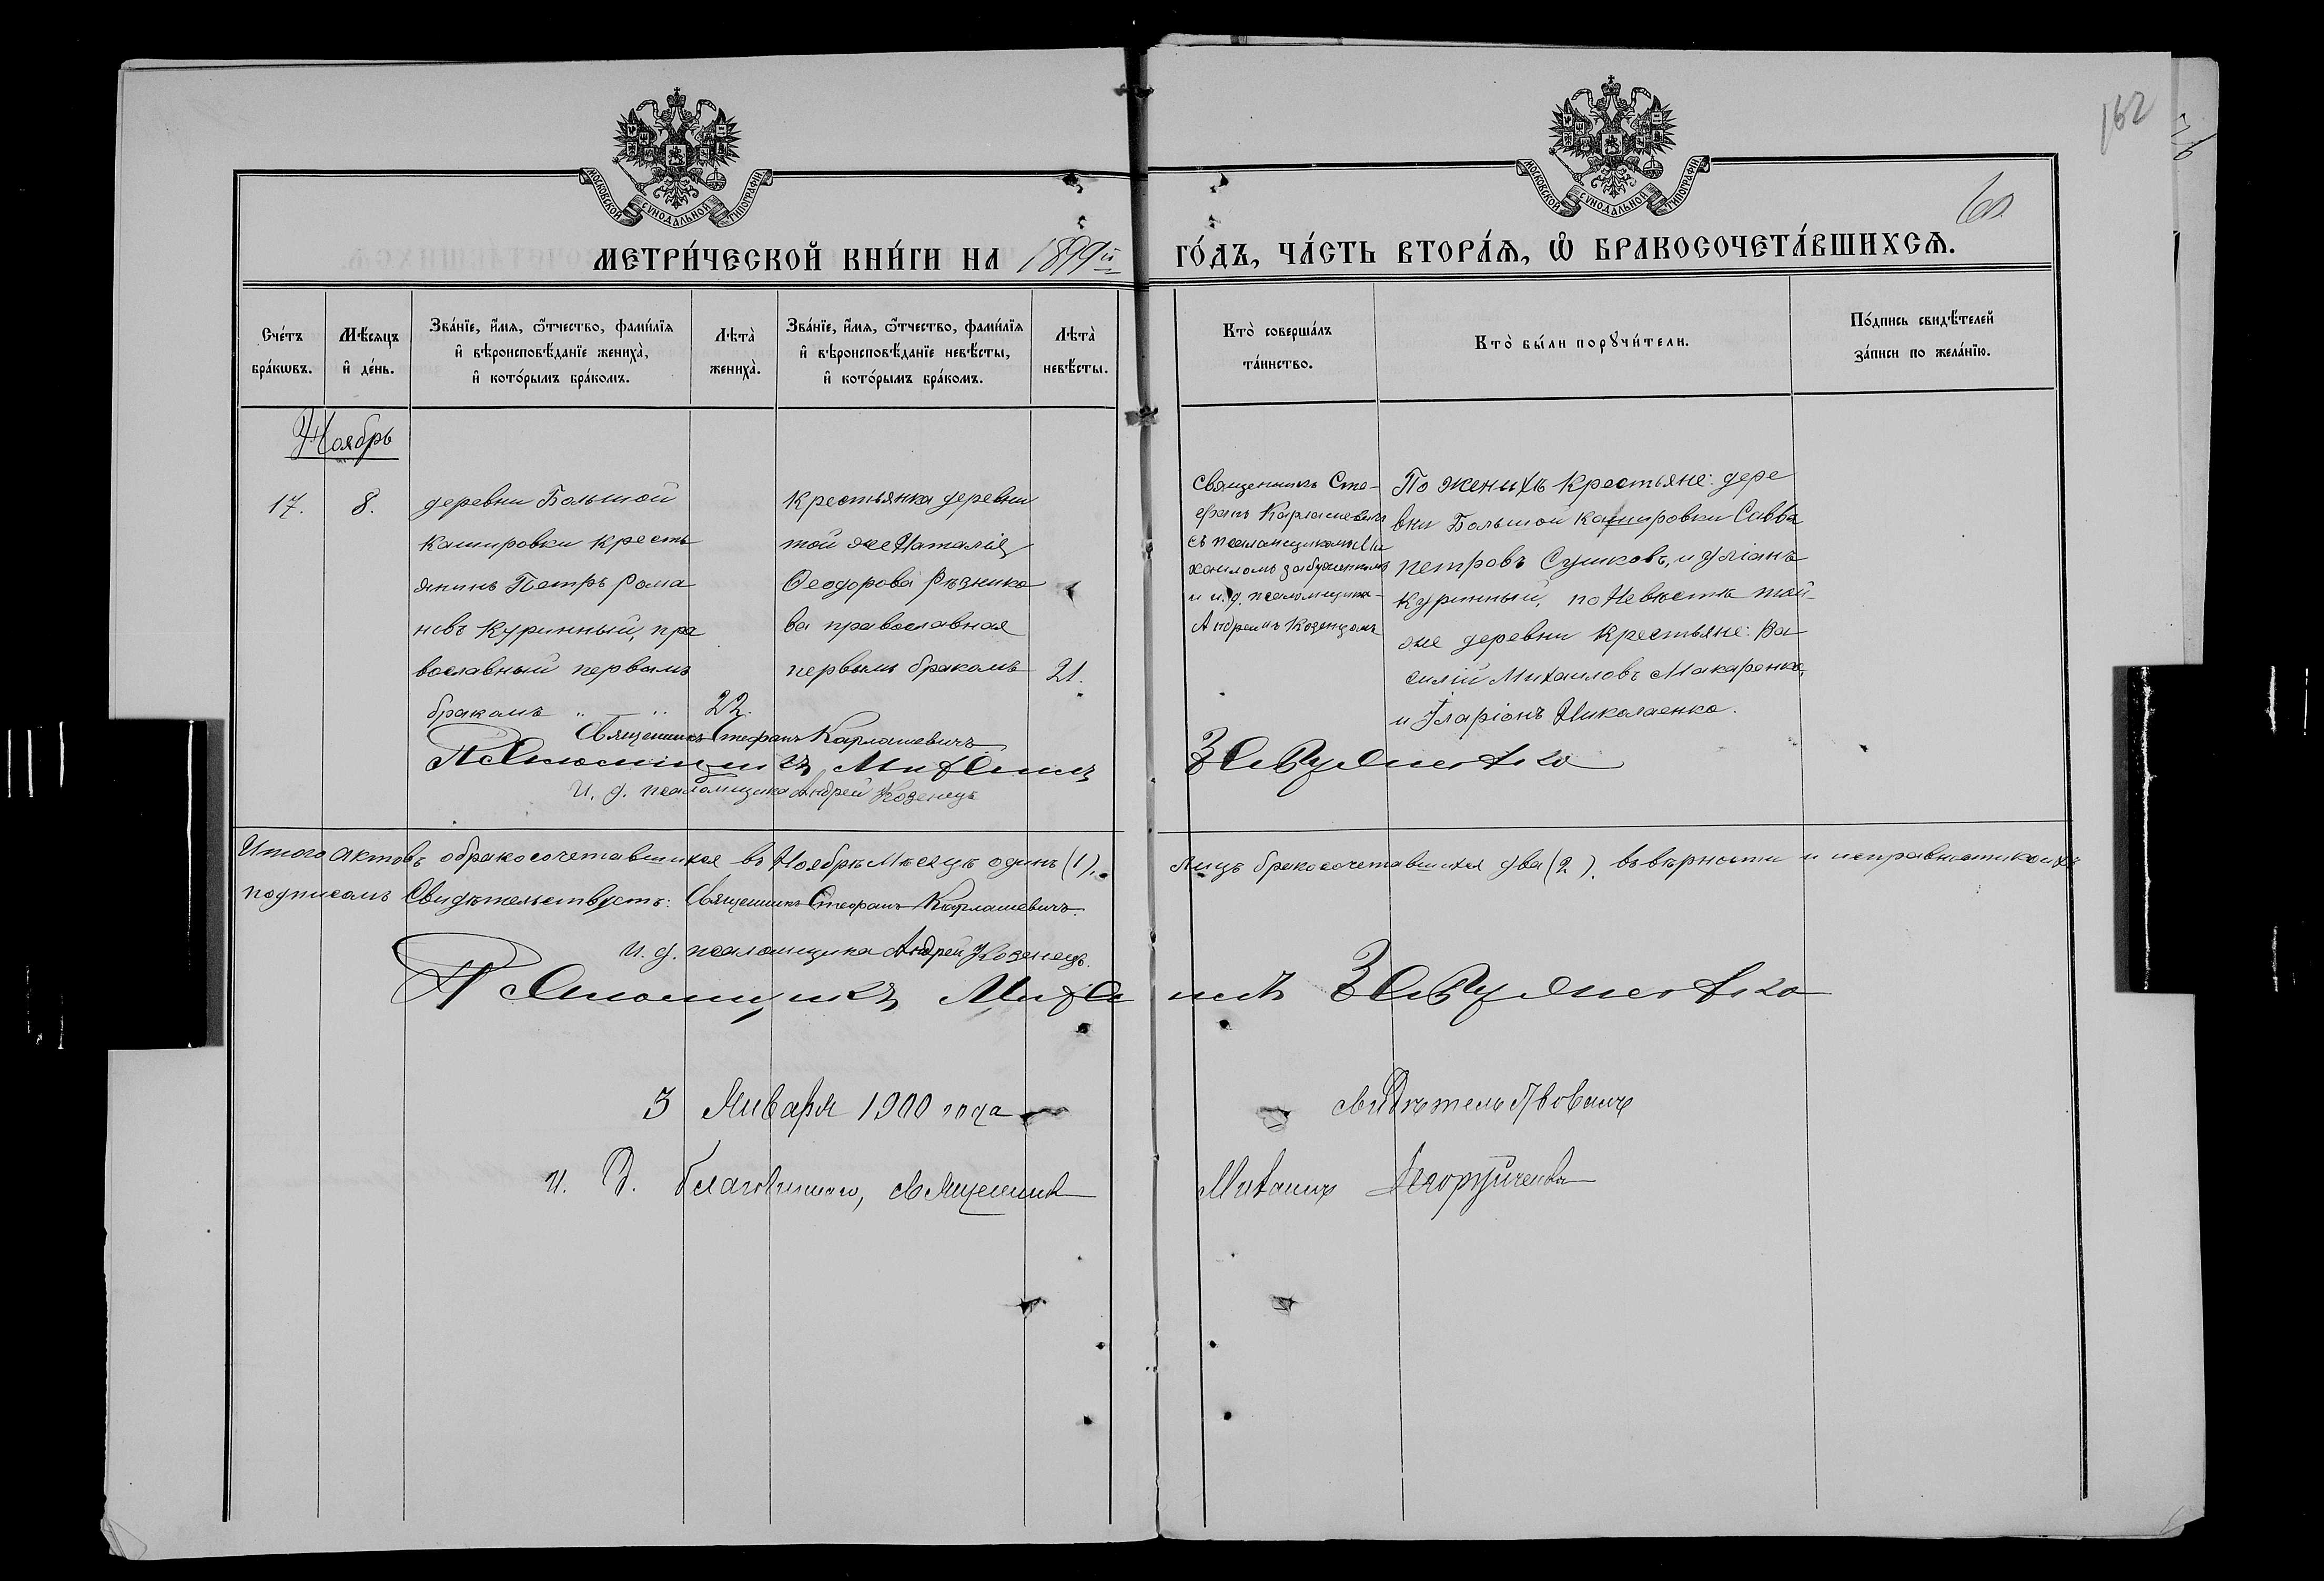 162
60
МОСКОВСКОЙ СѴНОДАЛЬНОЙ ТИПОГРАФІИ
МОСКОВСКОЙ СѴНОДАЛЬНОЙ ТИПОГРАФІИ
МЕТРИ́ЧЕСКОЙ КНИ́ГИ НА 1899й ГО́ДЪ, ЧА́СТЬ ВТОРА́Я, Ѽ БРАКОСОЧЕТА́ВШИХСѦ.
Сче́тъ бра́кωвъ.
Мѣ́сяцъ и҆ де́нь.
Зва́нїе, и҆́мѧ, ѻ҆́тчество, фами́лїѧ и҆ вѣроисповѣ́данїе жениха̀, и҆ кото́рымъ бра́комъ.
Лѣта̀ жениха̀.
Зва́нїе, и҆́мѧ, ѻ҆́тчество, фами́лїѧ и҆ вѣроисповѣ́данїе невѣ́сты, и҆ кото́рымъ бра́комъ.
Лѣта̀ невѣ́сты.
Кто̀ соверша́лъ та́инство.
Кто̀ бы́ли порꙋчи́тели.
По́дпись свидѣ́телей за́писи по жела́нїю.
Ноябрь
17.
8.
деревни Большой
Кашировки кресть
янинъ Петръ Рома
новъ Куринный, пра
вославный первымъ
бракомъ
22.
Крестьянка деревни
той же Наталія
Ѳеодорова Рѣзнико
ва православная
первымъ бракомъ
21.
Священникъ Сте-
фанъ Карлашевичъ
съ псаломщикомъ Ми
хаиломъ
и и. д. псаломщика
Андреемъ Козенцомъ
По женихѣ крестьяне: дере
вни Большой Кашировки Савва
Петровъ Сушковъ, и Уліанъ
Куринный, по Невѣстѣ той-
же деревни крестьяне: Ва
силій Михаиловъ Макаренко,
и Иларіонъ Николаенко.
Священникъ Стефанъ Карлашевичъ
Псаломщикъ Михаилъ
И. д. псаломщика Андрей Козенецъ
Итого актовъ о бракосочетавшихся въ Ноябрѣ Мѣсяцѣ одинъ (1), лицъ бракосочетавшихся два (2). въ вѣрности и исправности
подписомъ Свидѣтельствуетъ: Священникъ Стефанъ Карлашевичъ.
И. д. псаломщика Андрей Козенецъ.
Псаломщикъ Михаилъ
3 Января 1900 года
И. Д. благочиннаго, священникъ Михаилъ